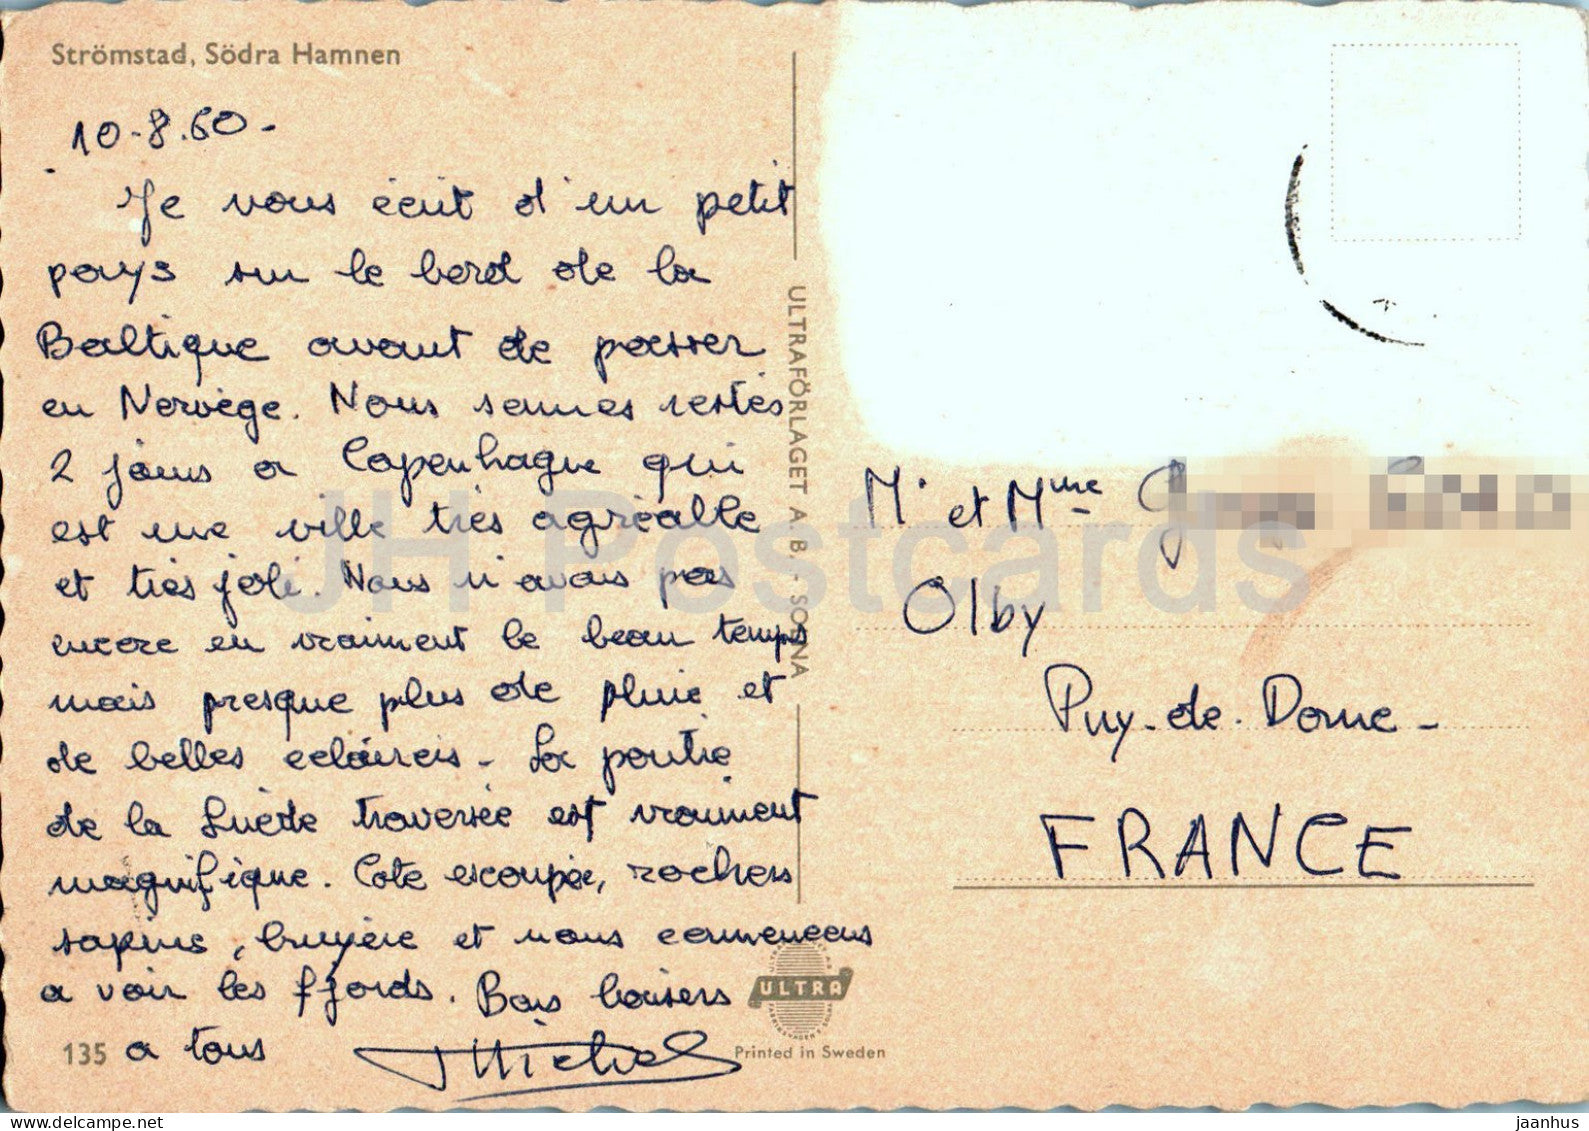 Strömstad, Södra Hamnen
10-8.60-
Je vous écrit d'un petit
pays sur le bord de la
Baltique avant de passer
en Norvège. Nous sommes restés
2 jours a Copenhague qui
est une ville très agréable
et très joli. Nous n'avons pas
encore eu vraiment le beau temps
mais presque plus de pluie et
de belles eclaircis - La partie
de la Suède traversée est vraiment
magnifique. Cote escoupée, rochers
sapins, bruyère et nous commencons
a voir les fjords. Bons baisers
a tous
Michel
135
ULTRAFÖRLAGET A.B. - SOLNA
ULTRA
Printed in Sweden
M. et Mme
Olby
Puy-de-Dome-
FRANCE
JH Postcards
www.delcampe.net
jaanhus